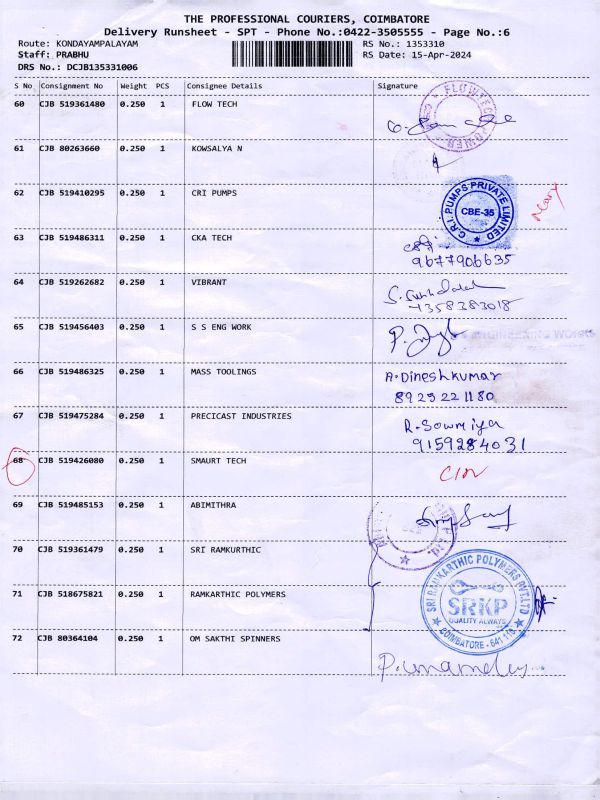 THE PROFESSIONAL COURIERS, COIMBATORE
Delivery Runsheet - SPT - Phone No.:0422-3505555 - Page No.:6
Route: KONDAYAMPALAYAM
RS No.: 1353310
Staff: PRABHU
RS Date: 15-Apr-2024
DRS No.: DCJB135331006
S No Consignment No Weight PCS Consignee Details Signature
60 CJB 519361480 0.250 1 FLOW TECH
FLOWTECH POWER
61 CJB 80263660 0.250 1 KOWSALYA N
62 CJB 519410295 0.250 1 CRI PUMPS
C.R.I. PUMPS PRIVATE LIMITED
CBE-35
63 CJB 519486311 0.250 1 CKA TECH
9677906635
64 CJB 519262682 0.250 1 VIBRANT
65 CJB 519456403 0.250 1 S S ENG WORK
ENGINEERING WORKS
66 CJB 519486325 0.250 1 MASS TOOLINGS
A. Dineshkumar
8925221180
67 CJB 519475284 0.250 1 PRECICAST INDUSTRIES
R. Sowmiya
9159284031
68 CJB 519426080 0.250 1 SMAURT TECH
69 CJB 519485153 0.250 1 ABIMITHRA
70 CJB 519361479 0.250 1 SRI RAMKURTHIC
71 CJB 518675821 0.250 1 RAMKARTHIC POLYMERS
SRI RAMKARTHIC POLYMERS PVT.LTD
SRKP
QUALITY ALWAYS
COIMBATORE - 641 110
72 CJB 80364104 0.250 1 OM SAKTHI SPINNERS